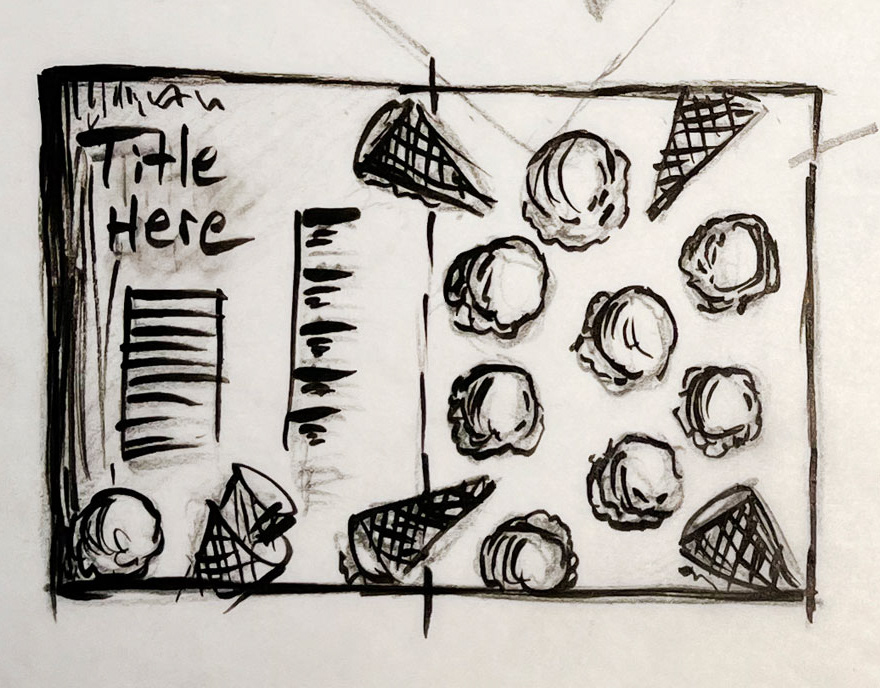 Title
Here